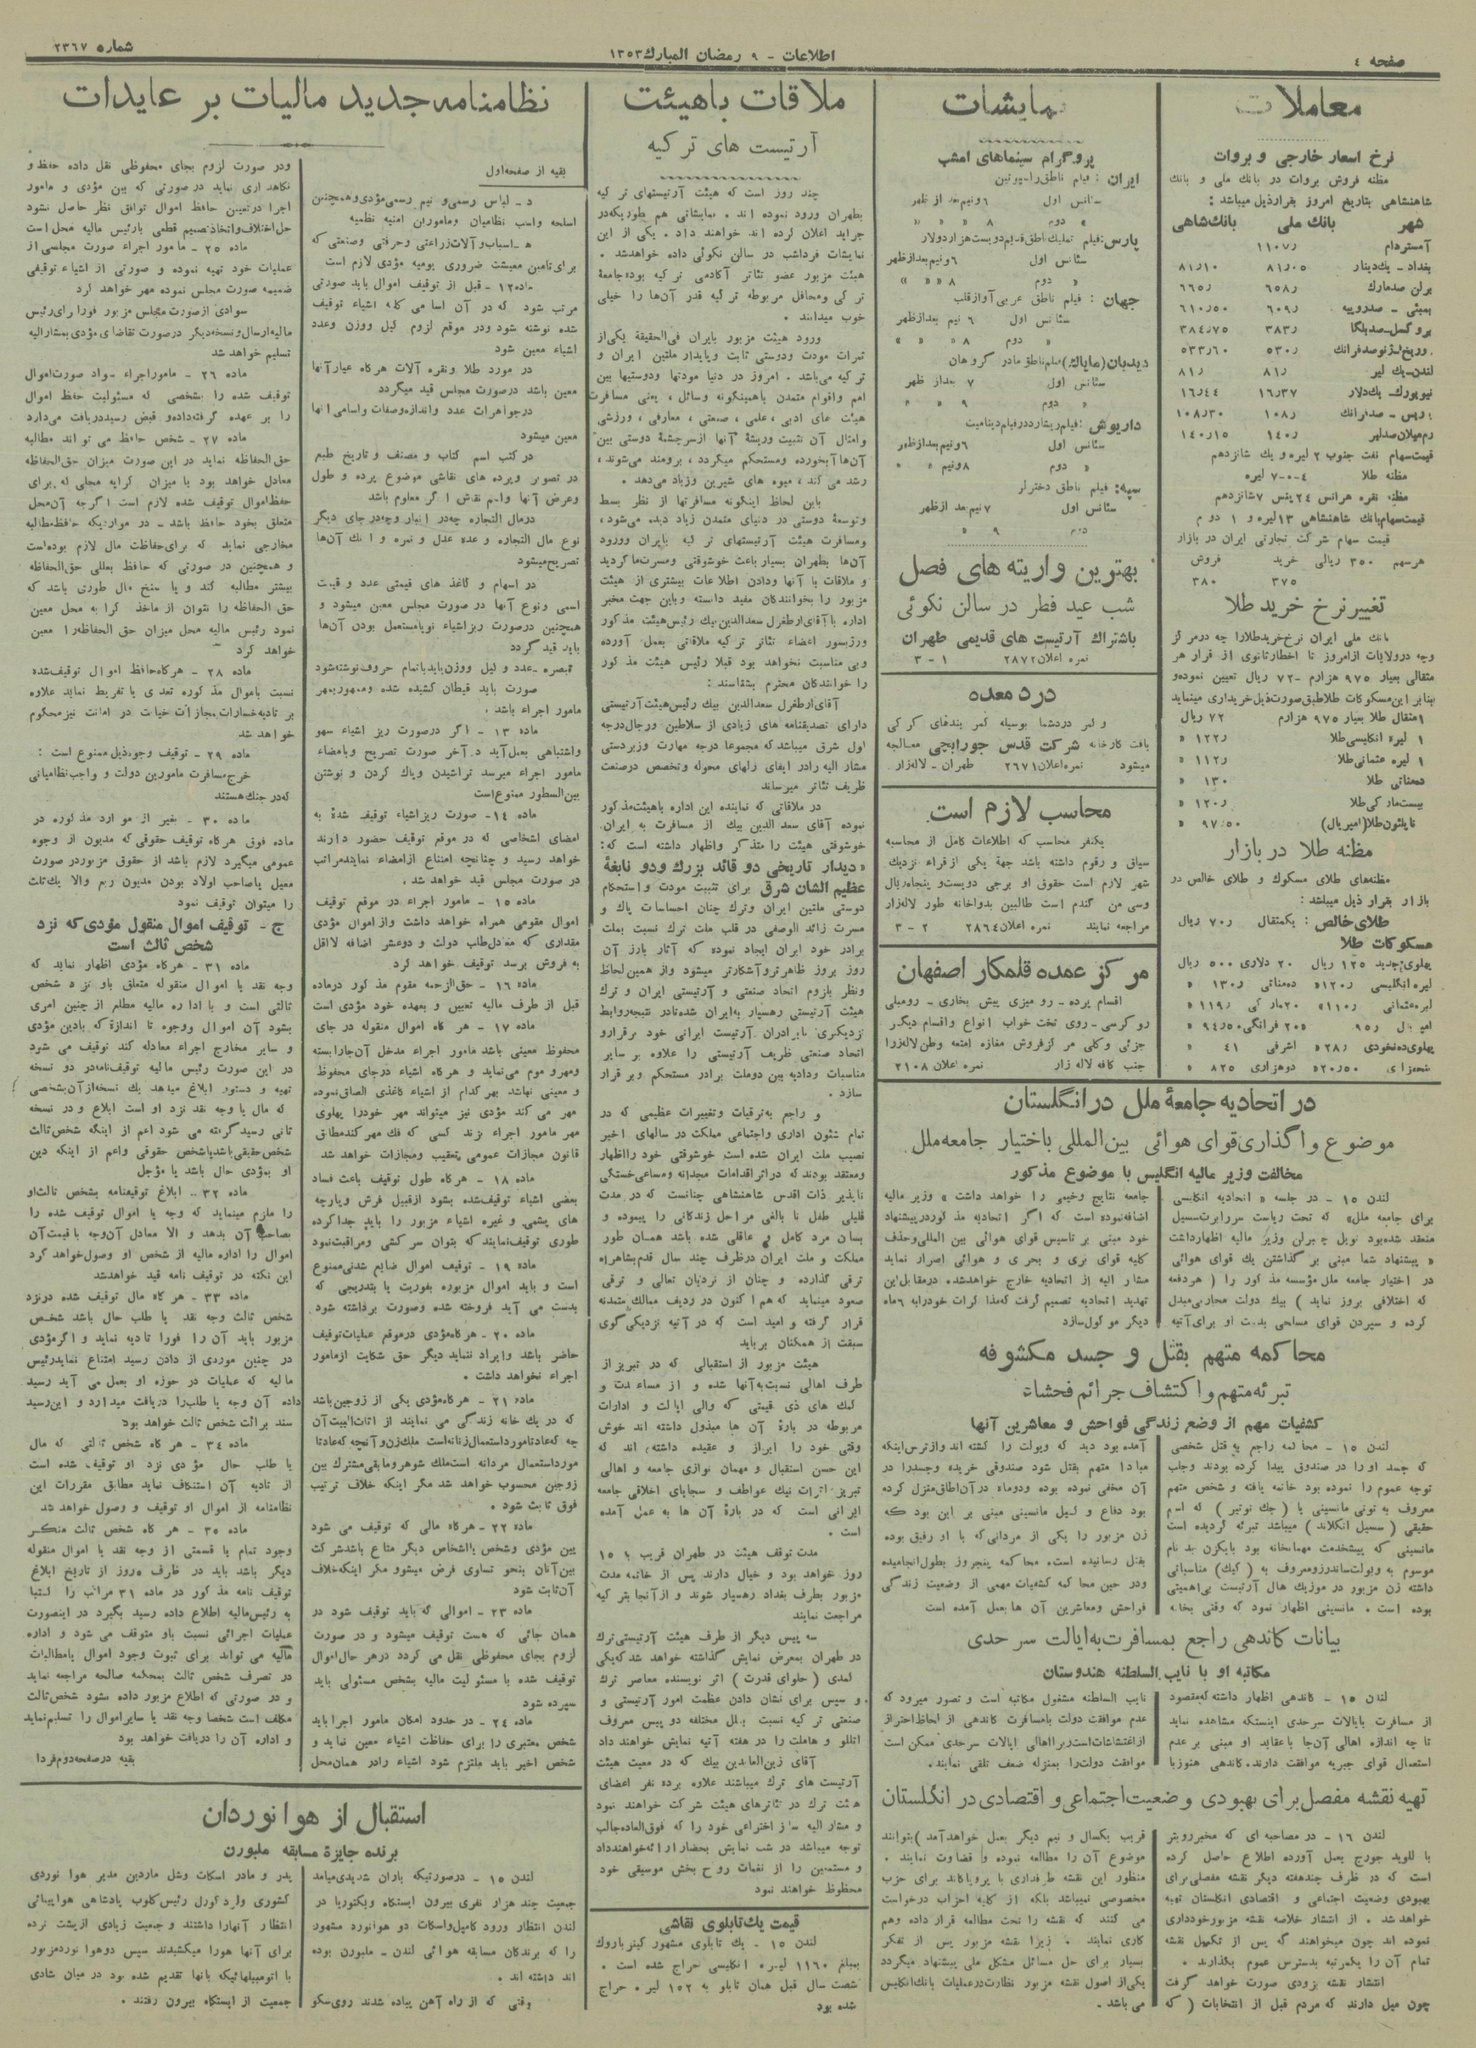 صفحه ٤
اطلاعات - ٩ رمضان المبارك ١٣٥٣
شماره ٢٣٦٧
معاملات
نرخ اسعار خارجی و بروات
مظنه فروش بروات در بانك ملی و بانك
شاهنشاهی بتاریخ امروز بقرار ذیل میباشد :
شهر بانك ملی بانك شاهی
آمستردام ١١٠٧ر
بغداد - يك دینار ٨١ر٠٥ ٨١ر١٠
برلن صدمارك ٦٥٨ر ٦٦٥ر
بمبئی - صدروپیه ٦٠٩ر ٦١٠ر٥٠
بروکسل صدبلگا ٣٨٣ر ٣٨٤ر٧٥
٥٣٠ر ٥٣٣ر٦٠
لندن يك لیر ٨١ر ٨١ر
نیویورك يك دلار ١٦ر٣٧ ١٦ر٤٤
صدفرانك ١٠٨ر ١٠٨ر٣٠
صدلیر ١٤٠ر ١٤٠ر١٥
قیمت سهام نفت جنوب ٢ لیره و يك شانزدهم
مظنه طلا ٤-٠-٧ لیره
مظنه نقره هر انس ٢٤ پنس ٧ شانزدهم
قیمت سهام بانك شاهنشاهی ١٣ لیره و ١ دوم
قیمت سهام شرکت تجارتی ایران در بازار
هر سهم ٣٥٠ ریالی خرید فروش
٣٧٥ ٣٨٠
تغییر نرخ خرید طلا
بانك ملی ایران نرخ خرید طلا را چه در مرکز
وچه در ولایات از امروز تا اخطار ثانوی از قرار هر
مثقالی بعیار ٩٧٥ هزارم -٧٢ ریال تعیین نموده و
بنابر این مسکوکات طلا طبق صورت ذیل خریداری مینماید
١ مثقال طلا بعیار ٩٧٥ هزارم ٧٢ ریال
١ لیره انگلیسی طلا ١٢٢ر «
١ لیره عثمانی طلا ١١٢ر «
ده مناتی طلا ١٣٠ «
بیست مارکی طلا ١٢٠ر «
ناپلئون طلا (امپریال) ٩٧ر٥٠ «
مظنه طلا در بازار
مظنه های طلای مسکوك و طلای خالص در
بازار بقرار ذیل میباشد :
طلای خالص : يك مثقال ٧٠ر ریال
مسکوکات طلا
پهلوی جدید ١٢٥ ریال ٢٠ دلاری ٥٠٠ ریال
لیره انگلیسی ١٢٠ر« ده مناتی ١٣٠ر «
لیره عثمانی ١١٠ر« ٢٠ مارکی ١١٩ر «
٩٥ر «٢٠ فرانگی ٩٤ر٥٠ «
پهلوی ده نخودی ٢٨ر« اشرفی ٤١ «
٢٠ر٥٠« دوهزاری ٨٢٥ «
نمایشات
پروگرام سینماهای امشب
ایران : فیلم ناطق راسپوتین
سئانس اول ٦ونیم بعد از ظهر
« دوم ٨ « «
سئانس اول ٦ونیم بعد از ظهر
« دوم ٨ « «
جهان : فیلم ناطق عربی آواز قلب
سئانس اول ٦ نیم بعد از ظهر
« دوم ٨ « «
دیدبان (مایاك) فیلم ناطق مادر گروهان
سئانس اول ٧ بعد از ظهر
« دوم ٩ « «
داریوش : فیلم ریشارد در فیلم دینامیت
سئانس اول ٦ونیم بعد از ظهر
« دوم ٨ونیم « «
سپه : فیلم ناطق دختر لر
سئانس اول ٧ نیم بعد از ظهر
دوم ٩ «
بهترین واریته های فصل
شب عید فطر در سالن نکوئی
باشتراك آرتیست های قدیمی طهران
نمره اعلان ٢٨٧٢ ١ - ٣
درد معده
و کمر درد شما بوسیله کمر بندهای کرکی
بافت کارخانه شرکت قدس جورابچی معالجه
میشود نمره اعلان ٢٦٧١ طهران - لاله زار
محاسب لازم است
یکنفر محاسب که اطلاعات کامل از محاسبه
سیاق و رقوم داشته باشد جهة یکی از قراء نزدیك
شهر لازم است حقوق او برجی دویست و پنجاه ریال
وسی من گندم است طالبین بدواخانه طور لاله زار
مراجعه نمایند نمره اعلان ٢٨٦٤ ٢ - ٣
مرکز عمده قلمکار اصفهان
اقسام پرده - رو میزی پیش بخاری - رومبلی
رو کرسی - روی تخت خواب انواع و اقسام دیگر
جزئی و کلی مرکز فروش مغازه امتعه وطن لاله زار
جنب کافه لاله زار نمره اعلان ٢١٠٨
در اتحادیه جامعهٔ ملل در انگلستان
موضوع واگذاری قوای هوائی بین المللی باختیار جامعه ملل
مخالفت وزیر مالیه انگلیس با موضوع مذکور
لندن ١٥ - در جلسه « اتحادیه انگلیسی
برای جامعه ملل» که تحت ریاست سر رابرت سسیل
منعقد شده بود نویل چمبرلن وزیر مالیه اظهار داشت
« پیشنهاد شما مبنی بر گذاشتن یك قوای هوائی
در اختیار جامعه ملل مؤسسه مذکور را ( هر دفعه
که اختلافی بروز نماید ) بیك دولت محاربی مبدل
کرده و سپردن قوای مسلحی بدست او برای آتیه
جامعه نتایج وخیمی را خواهد داشت » وزیر مالیه
اضافه نموده است که اگر اتحادیه مذکور در پیشنهاد
خود مبنی بر تاسیس قوای هوائی بین المللی و حذف
کلیه قوای بری و بحری و هوائی اصرار نماید
مشار الیه از اتحادیه خارج خواهد شد. در مقابل این
تهدید اتحادیه تصمیم گرفت که مذاکرات خود را به ٦ ماه
دیگر موکول سازد
محاکمه متهم بقتل و جسد مکشوفه
تبرئه متهم و اکتشاف جرائم فحشاء
کشفیات مهم از وضع زندگی فواحش و معاشرین آنها
لندن ١٥ - محاکمه راجع به قتل شخصی
که جسد او را در صندوق پیدا کرده بودند وجلب
توجه عموم را نموده بود خاتمه یافته و شخص متهم
معروف به تونی مانسینی یا ( جك نوتیر ) که اسم
حقیقی ( سسیل انگلاند ) میباشد تبرئه گردیده است
مانسینی که پیشخدمت مهمانخانه بود بایکزن بد نام
موسوم به ویولت ساندرز و معروف به (کیك) مناسباتی
داشته زن مزبور در موزیك هال آرتیست بی اهمیتی
بوده است . مانسینی اظهار نمود که وقتی بخانه
آمده بود دید که ویولت را کشته اند و از ترس اینکه
مبادا متهم بقتل شود صندوقی خریده وجسد را در
آن مخفی نموده بوده و دو ماه در آن اطاق منزل کرده
بود دفاع وکیل مانسینی مبنی بر این بود که
زن مزبور را یکی از مردانی که با او رفیق بوده
بقتل رسانیده است، محاکمه پنجروز بطول انجامیده
و در حین محاکمه کشفیات مهمی از وضعیت زندگی
فواحش و معاشرین آن ها بعمل آمده است
بیانات گاندهی راجع بمسافرت به ایالت سرحدی
مکاتبه او با نایب السلطنه هندوستان
لندن ١٥ - گاندهی اظهار داشته که مقصود
از مسافرت بایالات سرحدی اینستکه مشاهده نماید
تا چه اندازه اهالی آن جا با عقاید او مبنی بر عدم
استعمال قوای جبریه موافقت دارند. گاندهی هنوز با
نایب السلطنه مشغول مکاتبه است و تصور میرود که
عدم موافقت دولت با مسافرت گاندهی از لحاظ احتراز
از اغتشاشات است زیرا اهالی ایالات سرحدی ممکن است
موافقت دولت را بمنزله ضعف تلقی نمایند.
تهیه نقشه مفصل برای بهبودی وضعیت اجتماعی و اقتصادی در انگلستان
لندن ١٦ - در مصاحبه ای که مخبر رویتر
با للوید جورج بعمل آورده اطلاع حاصل کرده
است که در ظرف چند هفته دیگر نقشه مفصلی برای
بهبودی وضعیت اجتماعی و اقتصادی انگلستان تهیه
خواهد شد . از انتشار خلاصه نقشه مزبور خودداری
نموده اند چون میخواهند که پس از تکمیل نقشه
تمام آن را یکمرتبه بدسترس عموم بگذارند .
انتشار نقشه بزودی صورت خواهد گرفت
چون میل دارند که مردم قبل از انتخابات ( که
قریب یکسال و نیم دیگر بعمل خواهد آمد ) بتوانند
موضوع آن را مطالعه نموده و قضاوت نمایند .
منظور این نقشه طرفداری یا پروپاگاند برای حزب
مخصوصی نمیباشد بلکه از کلیه احزاب درخواست
می کنند که نقشه را تحت مطالعه قرار داده و هم
کاری نمایند . زیرا نقشه مزبور پس از تفکر
بسیار برای حل مسائل مشکل ملی پیشنهاد میگردد
یکی از اصول نقشه مزبور نظارت در عملیات بانك انگلیس
می باشد .
ملاقات با هیئت
آرتیست های ترکیه
چند روز است که هیئت آرتیستهای ترکیه
بطهران ورود نموده اند . نمایشاتی هم بطوریکه در
جراید اعلان کرده اند خواهند داد . یکی از این
نمایشات فردا شب در سالن نکوئی داده خواهد شد .
هیئت مزبور عضو تئاتر آکادمی ترکیه بوده جامعهٔ
ترکی و محافل مربوطه ترکیه قدر آن ها را خیلی
خوب میدانند .
ورود هیئت مزبور بایران فی الحقیقه یکی از
ثمرات مودت و دوستی ثابت و پایدار ملتین ایران و
ترکیه می باشد . امروز در دنیا مودتها و دوستیها بین
امم و اقوام متمدن با همینگونه وسائل ، یعنی مسافرت
هیئت های ادبی ، علمی ، صنعتی ، معارفی ، ورزشی
و امثال آن تثبیت و ریشهٔ آنها از سرچشمهٔ دوستی بین
آن ها آبخورده و مستحکم میگردد ، برومند می شوند ،
رشد می کند ، میوه های شیرین و زیاد می دهد .
باین لحاظ اینگونه مسافرتها از نظر بسط
و توسعهٔ دوستی در دنیای متمدن زیاد دیده می شود ،
و مسافرت هیئت آرتیستهای ترکیه بایران و ورود
آن ها بطهران بسیار باعث خوشوقتی و مسرت ما گردید
و ملاقات با آنها و دادن اطلاعات بیشتری از هیئت
مزبور را بخوانندگان مفید دانسته و باین جهت مخبر
اداره با آقای ارطغرل سعدالدین بیك رئیس هیئت مذکور
ورژیسور اعضاء تئاتر ترکیه ملاقاتی بعمل آورده
وبی مناسبت نخواهد بود قبلا رئیس هیئت مذکور
را خوانندگان محترم بشناسند :
آقای ارطغرل سعدالدین بیك رئیس هیئت آرتیستی
دارای تصدیقنامه های زیادی از سلاطین ورجال درجه
اول شرق میباشد که مجموعا درجه مهارت و زبردستی
مشار الیه را در ایفای رلهای محوله و تخصص در صنعت
ظریف تئاتر میرساند
در ملاقاتی که نماینده این اداره با هیئت مذکور
نموده آقای سعد الدین بیك از مسافرت به ایران
خوشوقتی هیئت را متذکر و اظهار داشته است که :
« دیدار تاریخی دو قائد بزرك و دو نابغهٔ
عظیم الشان شرق برای تثبیت مودت و استحکام
دوستی ملتین ایران و ترك چنان احساسات پاك و
مسرت زائد الوصفی در قلب ملت ترك نسبت بملت
برادر خود ایران ایجاد نموده که آثار بارز آن
روز بروز ظاهر تر و آشکارتر میشود و از همین لحاظ
ونظر بلزوم اتحاد صنعتی و آرتیستی ایران و ترك
هیئت آرتیستی رهسپار به ایران شده تا در نتیجه روابط
نزدیکتری با برادران آرتیست ایرانی خود برقرار و
اتحاد صنعتی ظریف آرتیستی را علاوه بر سایر
مناسبات ودادیه بین دو ملت برادر مستحکم و بر قرار
سازد .
و راجع به ترقیات و تغییرات عظیمی که در
تمام شئون اداری و اجتماعی مملکت در سالهای اخیر
نصیب ملت ایران شده است خوشوقتی خود را اظهار
و معتقد بودند که در اثر اقدامات مجدانه و مساعی خستگی
ناپذیر ذات اقدس شاهنشاهی چنانست که در مدت
قلیلی طفل نا بالغی مراحل زندگانی را پیموده و
بسان مرد کامل و عاقلی شده باشد همان طور
مملکت و ملت ایران در ظرف چند سال قدم بشاهراه
ترقی گذارده و چنان از نردبان تعالی و ترقی
صعود مینماید که هم اکنون در ردیف ممالك متمدنه
قرار گرفته و امید است که در آتیه نزدیکی گوی
سبقت از همکنان برباید
هیئت مزبور از استقبالی که در تبریز از
طرف اهالی نسبت به آنها شده و از مساعدت و
کمك های ذی قیمتی که والی ایالت و ادارات
مربوطه در بارهٔ آن ها مبذول داشته اند خوش
وقتی خود را ابراز و عقیده داشته اند که
این حسن استقبال و مهمان نوازی جامعه و اهالی
تبریز اثرات نیك عواطف و سجایای اخلاقی جامعه
ایرانی است که در بارهٔ آن ها به عمل آمده
است .
مدت توقف هیئت در طهران قریب به ١٥
روز خواهد بود و خیال دارند پس از خاتمه مدت
مزبور بطرف بغداد رهسپار شوند و از آنجا بترکیه
مراجعت نمایند
سه پیس دیگر از طرف هیئت آرتیستی ترك
در طهران بمعرض نمایش گذاشته خواهد شد که یکی
کمدی (حلوای قدرت) اثر نویسنده معاصر ترك
و سپس برای نشان دادن عظمت امور آرتیستی و
صنعتی ترکیه نسبت بملل مختلفه دو پیس معروف
اتللو و هاملت را در هفته آتیه نمایش خواهند داد
آقای زین العابدین بیك که در معیت هیئت
آرتیست های ترك میباشند علاوه بر ده نفر اعضای
هیئت ترك در تئاترهای هیئت شرکت خواهند نمود
و مشار الیه ساز اختراعی خود را که فوق العاده جالب
توجه میباشد در شب نمایش بحضار ارائه خواهند داد
و مستمعین را از نغمات روح بخش موسیقی خود
محظوظ خواهند نمود
قیمت يك تابلوی نقاشی
لندن ١٥ - يك تابلوی مشهور گینزباروك
بمبلغ ١١٦٠ لیره انگلیسی حراج شده است .
شصت سال قبل همان تابلو به ١٥٢ لیره حراج
شده بود
نظامنامه جدید مالیات بر عایدات
بقیه از صفحه اول
د - لباس رسمی و نیم رسمی مؤدی و همچنین
اسلحه و اسب نظامیان و ماموران امنیه نظمیه
هـ - اسباب و آلات زراعتی و حرفتی و صنعتی که
برای تامین معیشت ضروری یومیه مؤدی لازم است
ماده ١٢ - قبل از توقیف اموال باید صورتی
مرتب شود که در آن اسامی کلیه اشیاء توقیف
شده نوشته شود و در موقع لزوم کیل و وزن و عدد
اشیاء معین شود
در مورد طلا و نقره آلات هرگاه عیار آنها
معین باشد در صورت مجلس قید میگردد
در جواهرات عدد و اندازه و صفات و اسامی آنها
معین میشود
در کتب اسم کتاب و مصنف و تاریخ طبع
در تصویر و پرده های نقاشی موضوع پرده و طول
و عرض آنها و اسم نقاش اگر معلوم باشد
در مال التجاره چه در انبار و چه در جای دیگر
نوع مال التجاره و عده عدل و نمره و انك آن ها
تصریح میشود
در اسهام و کاغذ های قیمتی عدد و قیمت
اسمی و نوع آنها در صورت مجلس معین میشود و
همچنین در صورت ریز اشیاء نو یا مستعمل بودن آن ها
باید قید گردد
تبصره - عدد و کیل و وزن باید با تمام حروف نوشته شود
صورت باید قیطان کشیده شده و ممهور بمهر
مامور اجراء باشد .
ماده ١٣ - اگر در صورت ریز اشیاء سهو
و اشتباهی بعمل آید در آخر صورت تصریح و بامضاء
مامور اجراء میرسد تراشیدن و پاك کردن و نوشتن
بین السطور ممنوع است
ماده ١٤ - صورت ریز اشیاء توقیف شدهٔ به
امضای اشخاصی که در موقع توقیف حضور دارند
خواهد رسید و چنانچه امتناع از امضاء نمایند مراتب
در صورت مجلس قید خواهد شد .
ماده ١٥ - مامور اجراء در موقع توقیف
اموال مقومی همراه خواهد داشت و از اموال مؤدی
مقداری که معادل طلب دولت و دو عشر اضافه لااقل
به فروش برسد توقیف خواهد کرد
ماده ١٦ - حق الزحمه مقوم مذکور در ماده
قبل از طرف مالیه تعیین و بعهده خود مؤدی است
ماده ١٧ - هرگاه اموال منقوله در جای
محفوظ معینی باشد مامور اجراء مدخل آن جا را بسته
و مهر و موم می نماید و هرگاه اشیاء در جای محفوظ
و معینی نباشد بهر کدام از اشیاء کاغذی الصاق نموده
مهر می کند مؤدی نیز میتواند مهر خود را پهلوی
مهر مامور اجراء بزند کسی که فك مهر کند مطابق
قانون مجازات عمومی تعقیب و مجازات خواهد شد
ماده ١٨ - هرگاه طول توقیف باعث فساد
بعضی اشیاء توقیف شده بشود از قبیل فرش و پارچه
های پشمی و غیره اشیاء مزبور را باید جدا کرده
طوری توقیف نمایند که بتوان سرکشی و مراقبت نمود
ماده ١٩ - توقیف اموال ضایع شدنی ممنوع
است و باید اموال مزبوره بفوریت یا بتدریجی که
بدست می آید فروخته شده و صورت برداشته شود
ماده ٢٠ - هرگاه مؤدی در موقع عملیات توقیف
حاضر باشد و ایراد ننماید دیگر حق شکایت از مامور
اجراء نخواهد داشت .
ماده ٢١ - هرگاه مؤدی یکی از زوجین باشد
که در يك خانه زندگی می نمایند از اثاث البیت آن
چه که عادتا مورد استعمال زنانه است ملك زن و آنچه که عادتا
مورد استعمال مردانه است ملك شوهر و مابقی مشترك بین
زوجین محسوب خواهد شد مگر اینکه خلاف ترتیب
فوق ثابت شود .
ماده ٢٢ - هرگاه مالی که توقیف می شود
بین مؤدی و شخص یا اشخاص دیگر مشاع باشد شرکت
بین آنان بنحو تساوی فرض میشود مگر اینکه خلاف
آن ثابت شود
ماده ٢٣ - اموالی که باید توقیف شود در
همان جائی که هست توقیف میشود و در صورت
لزوم بجای محفوظی نقل می گردد در هر حال اموال
توقیف شده با مسئولیت مالیه بشخص مسئولی باید
سپرده شود
ماده ٢٤ - در حدود امکان مامور اجرا باید
شخص معتبری را برای حفاظت اشیاء معین نماید و
شخص اخیر باید ملتزم شود اشیاء را در همان محل
ودر صورت لزوم بجای محفوظی نقل داده حفظ و
نگاهداری نماید در صورتی که بین مؤدی و مامور
اجرا در تعیین حافظ اموال توافق نظر حاصل نشود
حل اختلاف و اتخاذ تصمیم قطعی با رئیس مالیه محل است
ماده ٢٥ - مامور اجراء صورت مجلسی از
عملیات خود تهیه نموده و صورتی از اشیاء توقیفی
ضمیمه صورت مجلس نموده مهر خواهد کرد
سوادی از صورت مجلس مزبور فورا برای رئیس
مالیه ارسال و نسخه دیگر در صورت تقاضای مؤدی بمشار الیه
تسلیم خواهد شد
ماده ٢٦ - مامور اجراء سواد صورت اموال
توقیف شده را بشخصی که مسئولیت حفظ اموال
را بر عهده گرفته داده و قبض رسید دریافت می دارد
ماده ٢٧ - شخص حافظ می تواند مطالبه
حق الحفاظه نماید در این صورت میزان حق الحفاظه
معادل خواهد بود با میزان کرایه محلی که برای
حفظ اموال توقیف شده لازم است اگر چه آن محل
متعلق بخود حافظ باشد - در مواردیکه حافظ مطالبه
مخارجی نماید که برای حفاظت مال لازم بوده است
و همچنین در صورتی که حافظ بعللی حق الحفاظه
بیشتر مطالبه کند و یا سنخ مال طوری باشد که
حق الحفاظه را نتوان از ماخذ کرایه محل معین
نمود رئیس مالیه محل میزان حق الحفاظه را معین
خواهد کرد
ماده ٢٨ - هرگاه حافظ اموال توقیف شده
نسبت باموال مذکوره تعدی یا تفریط نماید علاوه
بر تادیه خسارات بمجازات خیانت در امانت نیز محکوم
خواهد شد
ماده ٢٩ - توقیف وجوه ذیل ممنوع است :
خرج مسافرت مامورین دولت و مواجب نظامیانی
که در جنك هستند
ماده ٣٠ - بغیر از موارد مذکوره در
ماده فوق هرگاه توقیف حقوقی که مدیون از وجوه
عمومی میگیرد لازم باشد از حقوق مزبور در صورت
معیل یا صاحب اولاد بودن مدیون ربع والا يك ثلث
را میتوان توقیف نمود
ج - توقیف اموال منقول مؤدی که نزد
شخص ثالث است
ماده ٣١ - هرگاه مؤدی اظهار نماید که
وجه نقد یا اموال منقوله متعلق باو نزد شخص
ثالثی است و یا اداره مالیه مطلع از چنین امری
بشود آن اموال و وجوه تا اندازهٔ که با دین مؤدی
و سایر مخارج اجراء معادله کند توقیف می شود
در این صورت رئیس مالیه توقیف نامه در دو نسخه
تهیه و دستور ابلاغ میدهد يك نسخه از آن بشخصی
که مال یا وجه نقد نزد او است ابلاغ و در نسخه
ثانی رسید گرفته می شود اعم از اینکه شخص ثالث
شخص حقیقی باشد یا شخص حقوقی و اعم از اینکه دین
او بمؤدی حال باشد یا مؤجل
ماده ٣٢ - ابلاغ توقیفنامه بشخص ثالث او
را ملزم مینماید که وجه یا اموال توقیف شده را
بصاحب آن بدهد و الا معادل آن وجه یا قیمت آن
اموال را اداره مالیه از شخص او وصول خواهد کرد
این نکته در توقیف نامه قید خواهد شد
ماده ٣٣ - هرگاه مال توقیف شده در نزد
شخص ثالث وجه نقد یا طلب حال باشد شخص
مزبور باید آن را فورا تادیه نماید و اگر مؤدی
در چنین موردی از دادن رسید امتناع نماید رئیس
مالیه که عملیات در حوزه او بعمل می آید رسید
داده آن وجه یا طلب را دریافت میدارد و این رسید
سند برائت شخص ثالث خواهد بود
ماده ٣٤ - هرگاه شخص ثالثی که مال
یا طلب حال مؤدی نزد او توقیف شده است
از تادیه آن استنکاف نماید مطابق مقررات این
نظامنامه از اموال او توقیف و وصول خواهد شد
ماده ٣٥ - هرگاه شخص ثالث منکر
وجود تمام یا قسمتی از وجه نقد یا اموال منقوله
دیگر باشد باید در ظرف ٥ روز از تاریخ ابلاغ
توقیف نامه مذکور در ماده ٣١ مراتب را کتبا
به رئیس مالیه اطلاع داده رسید بگیرد در اینصورت
عملیات اجرائی نسبت باو متوقف می شود و اداره
مالیه می تواند برای ثبوت وجود اموال یا مطالبات
در تصرف شخص ثالث بمحکمه صالحه مراجعه نماید
و در صورتی که اطلاع مزبور داده نشود شخص ثالث
مکلف است شخصا وجه نقد یا سایر اموال را تسلیم نماید
و اداره آن را دریافت خواهد بود
بقیه در صفحه دوم فردا
استقبال از هوا نوردان
برنده جایزهٔ مسابقه ملبورن
لندن ١٥ - در صورتیکه باران شدیدی میامد
جمعیت چند هزار نفری بیرون ایستگاه ویکتوریا در
لندن انتظار ورود کامپل و اسکات دو هوانورد مشهور
را که برندگان مسابقه هوائی لندن - ملبورن بوده
اند داشته اند .
وقتی که از راه آهن پیاده شدند روی سکو
پدر و مادر اسکات وشل ماردین مدیر هوا نوردی
کشوری ولرد گورل رئیس کلوب پادشاهی هواپیمائی
انتظار آنها را داشتند و جمعیت زیادی از پشت نرده
برای آنها هورا میکشیدند سپس دو هوا نورد مزبور
با اتومبیلهائیکه بآنها تقدیم شده بود در میان شادی
جمعیت از ایستگاه بیرون رفتند .